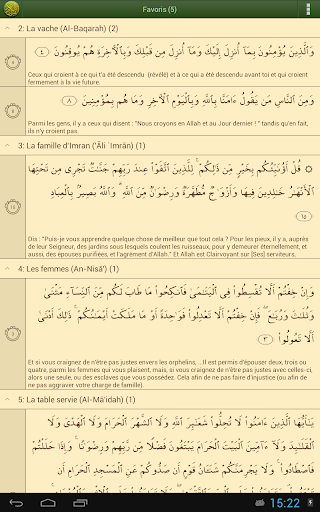 Favoris (5)
2: La vache (Al-Baqarah) (2)
وَٱلَّذِينَ يُؤْمِنُونَ بِمَآ أُنزِلَ إِلَيْكَ وَمَآ أُنزِلَ مِن قَبْلِكَ وَبِٱلْءَاخِرَةِ هُمْ يُوقِنُونَ ﴿٤﴾
Ceux qui croient à ce qui t'a été descendu (révélé) et à ce qui a été descendu avant toi et qui croient
fermement à la vie future.
وَمِنَ ٱلنَّاسِ مَن يَقُولُ ءَامَنَّا بِٱللَّهِ وَبِٱلْيَوْمِ ٱلْءَاخِرِ وَمَا هُم بِمُؤْمِنِينَ ﴿٨﴾
Parmi les gens, il y a ceux qui disent : "Nous croyons en Allah et au Jour dernier ! " tandis qu'en fait,
ils n'y croient pas.
3: La famille d'Imran (Āli `Imrān) (1)
قُلْ أَؤُنَبِّئُكُم بِخَيْرٍ مِّن ذَٰلِكُمْ ۚ لِلَّذِينَ ٱتَّقَوْا۟ عِندَ رَبِّهِمْ جَنَّٰتٌ تَجْرِى مِن تَحْتِهَا
ٱلْأَنْهَٰرُ خَٰلِدِينَ فِيهَا وَأَزْوَٰجٌ مُّطَهَّرَةٌ وَرِضْوَٰنٌ مِّنَ ٱللَّهِ ۗ وَٱللَّهُ بَصِيرٌۢ بِٱلْعِبَادِ
﴿١٥﴾
Dis : "Puis-je vous apprendre quelque chose de meilleur que tout cela ? Pour les pieux, il y a, auprès
de leur Seigneur, des jardins sous lesquels coulent les ruisseaux, pour y demeurer éternellement, et
aussi, des épouses purifiées, et l'agrément d'Allah." Et Allah est Clairvoyant sur [Ses] serviteurs.
4: Les femmes (An-Nisā') (1)
وَإِنْ خِفْتُمْ أَلَّا تُقْسِطُوا۟ فِى ٱلْيَتَٰمَىٰ فَٱنكِحُوا۟ مَا طَابَ لَكُم مِّنَ ٱلنِّسَآءِ مَثْنَىٰ
وَثُلَٰثَ وَرُبَٰعَ ۖ فَإِنْ خِفْتُمْ أَلَّا تَعْدِلُوا۟ فَوَٰحِدَةً أَوْ مَا مَلَكَتْ أَيْمَٰنُكُمْ ۚ ذَٰلِكَ أَدْنَىٰٓ
أَلَّا تَعُولُوا۟ ﴿٣﴾
Et si vous craignez de n'être pas justes envers les orphelins, ...Il est permis d'épouser deux, trois ou
quatre, parmi les femmes qui vous plaisent, mais, si vous craignez de n'être pas justes avec celles-ci,
alors une seule, ou des esclaves que vous possédez. Cela afin de ne pas faire d'injustice (ou afin de
ne pas aggraver votre charge de famille).
5: La table servie (Al-Mā'idah) (1)
يَٰٓأَيُّهَا ٱلَّذِينَ ءَامَنُوا۟ لَا تُحِلُّوا۟ شَعَٰٓئِرَ ٱللَّهِ وَلَا ٱلشَّهْرَ ٱلْحَرَامَ وَلَا ٱلْهَدْىَ وَلَا
ٱلْقَلَٰٓئِدَ وَلَآ ءَآمِّينَ ٱلْبَيْتَ ٱلْحَرَامَ يَبْتَغُونَ فَضْلًا مِّن رَّبِّهِمْ وَرِضْوَٰنًا ۚ وَإِذَا حَلَلْتُمْ
فَٱصْطَادُوا۟ ۚ وَلَا يَجْرِمَنَّكُمْ شَنَـَٔانُ قَوْمٍ أَن صَدُّوكُمْ عَنِ ٱلْمَسْجِدِ ٱلْحَرَامِ أَن
15:22